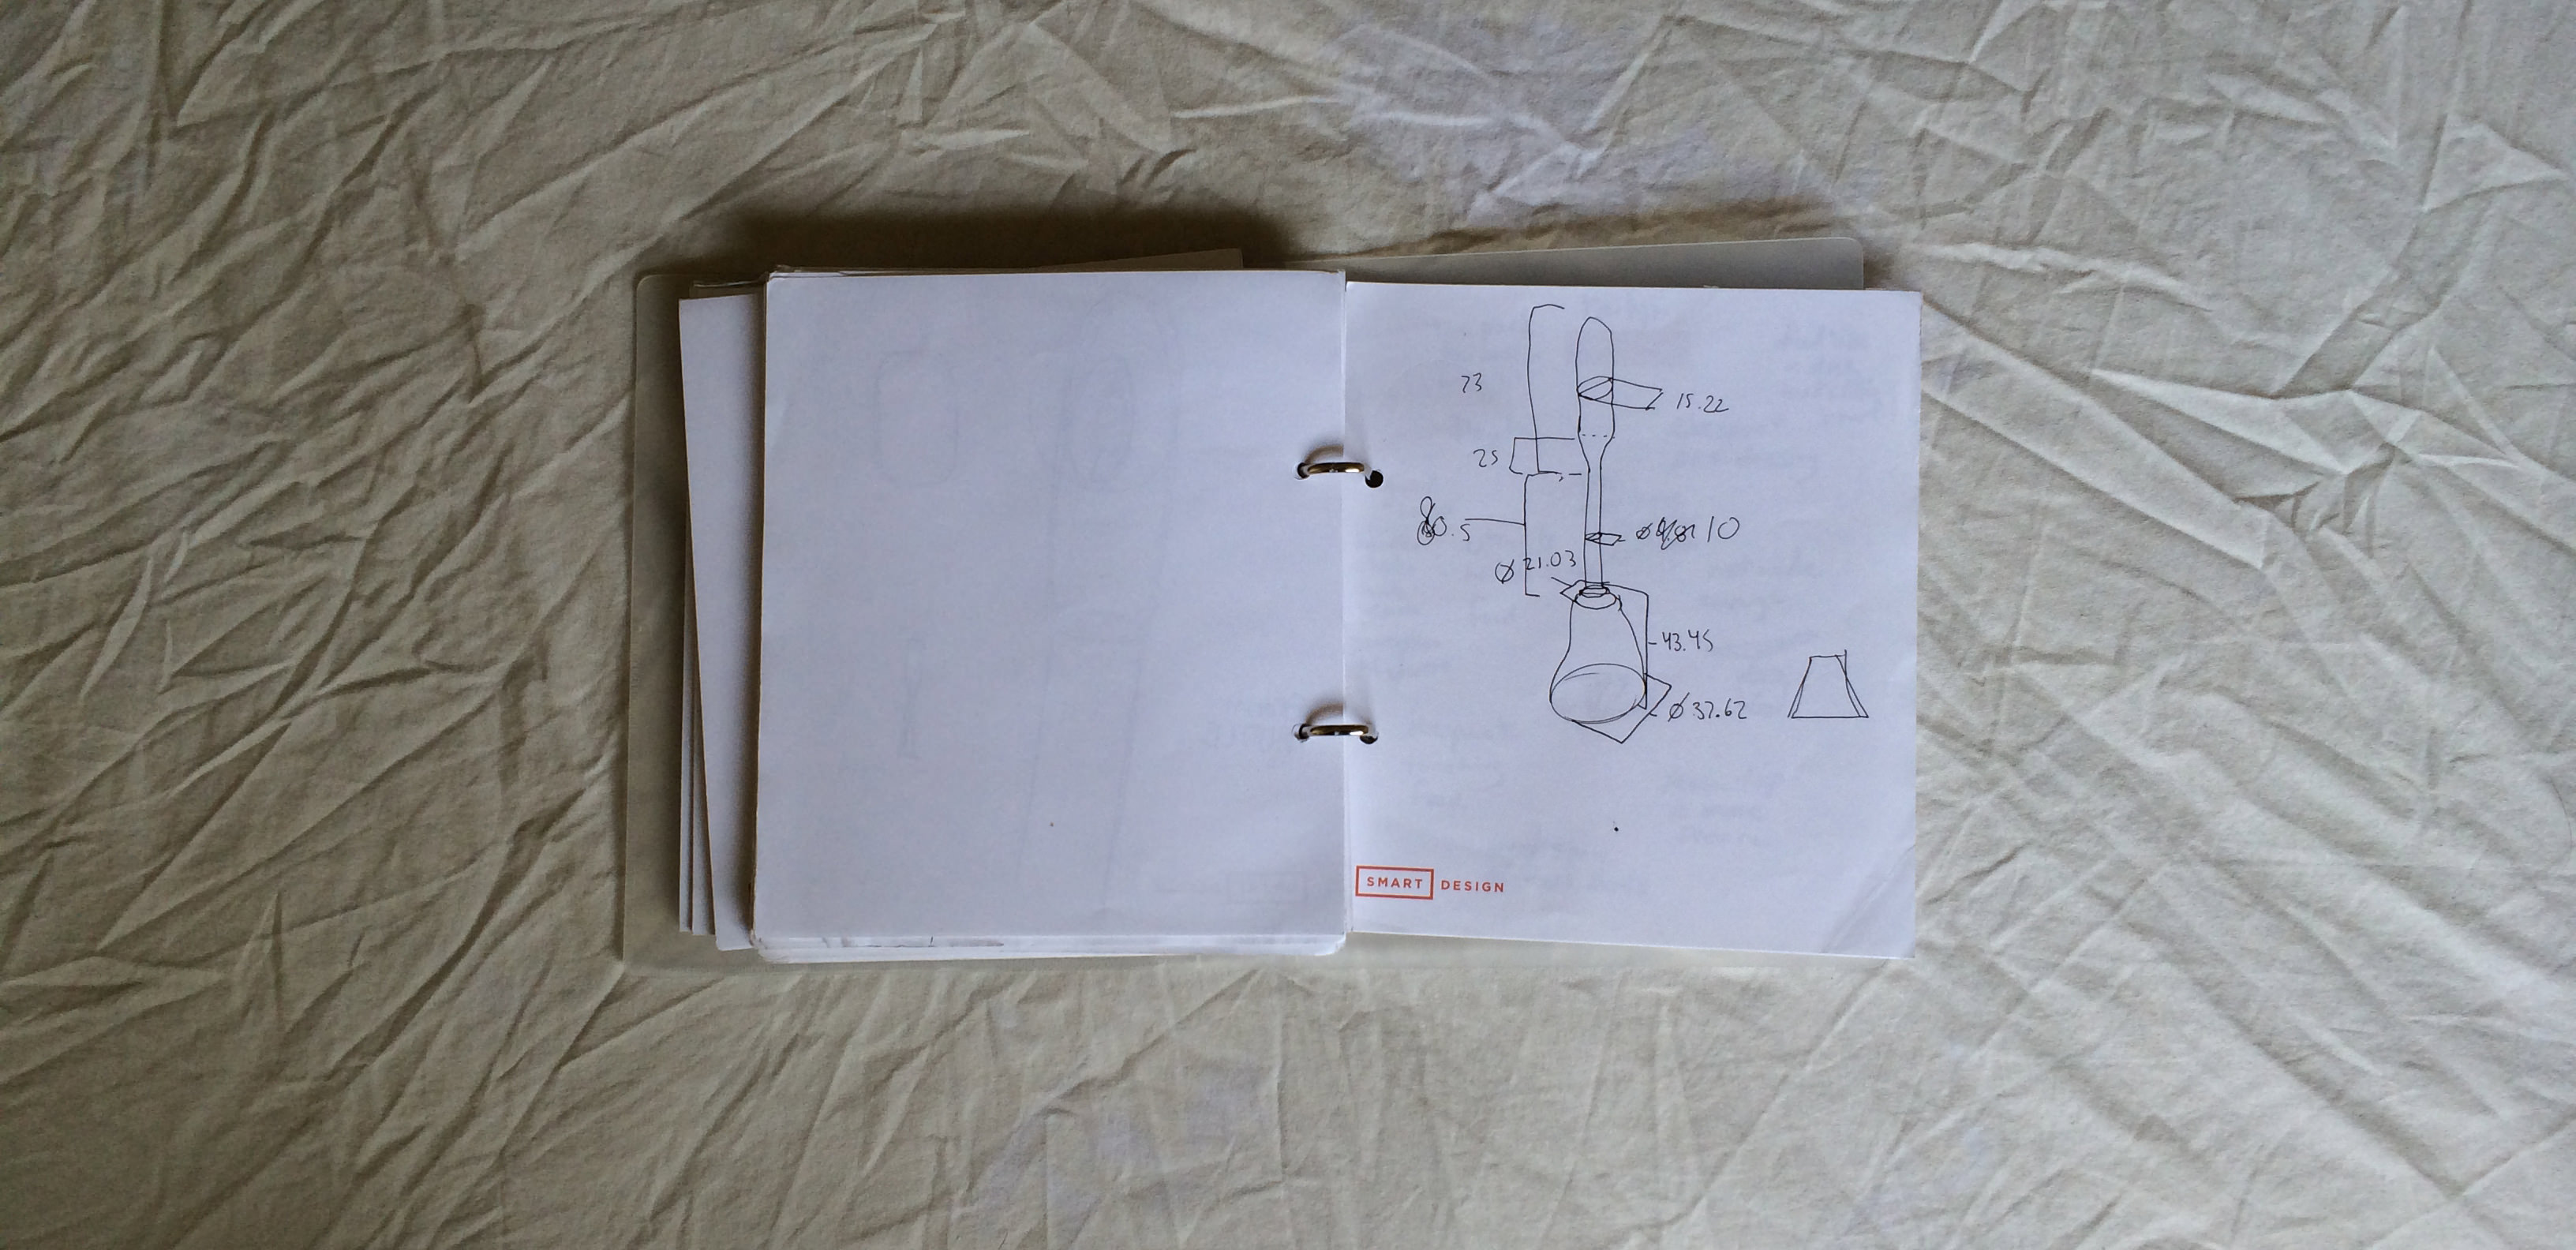 15.22
25
80.5
10
Ø 21.03
43.45
Ø 37.62
SMART DESIGN